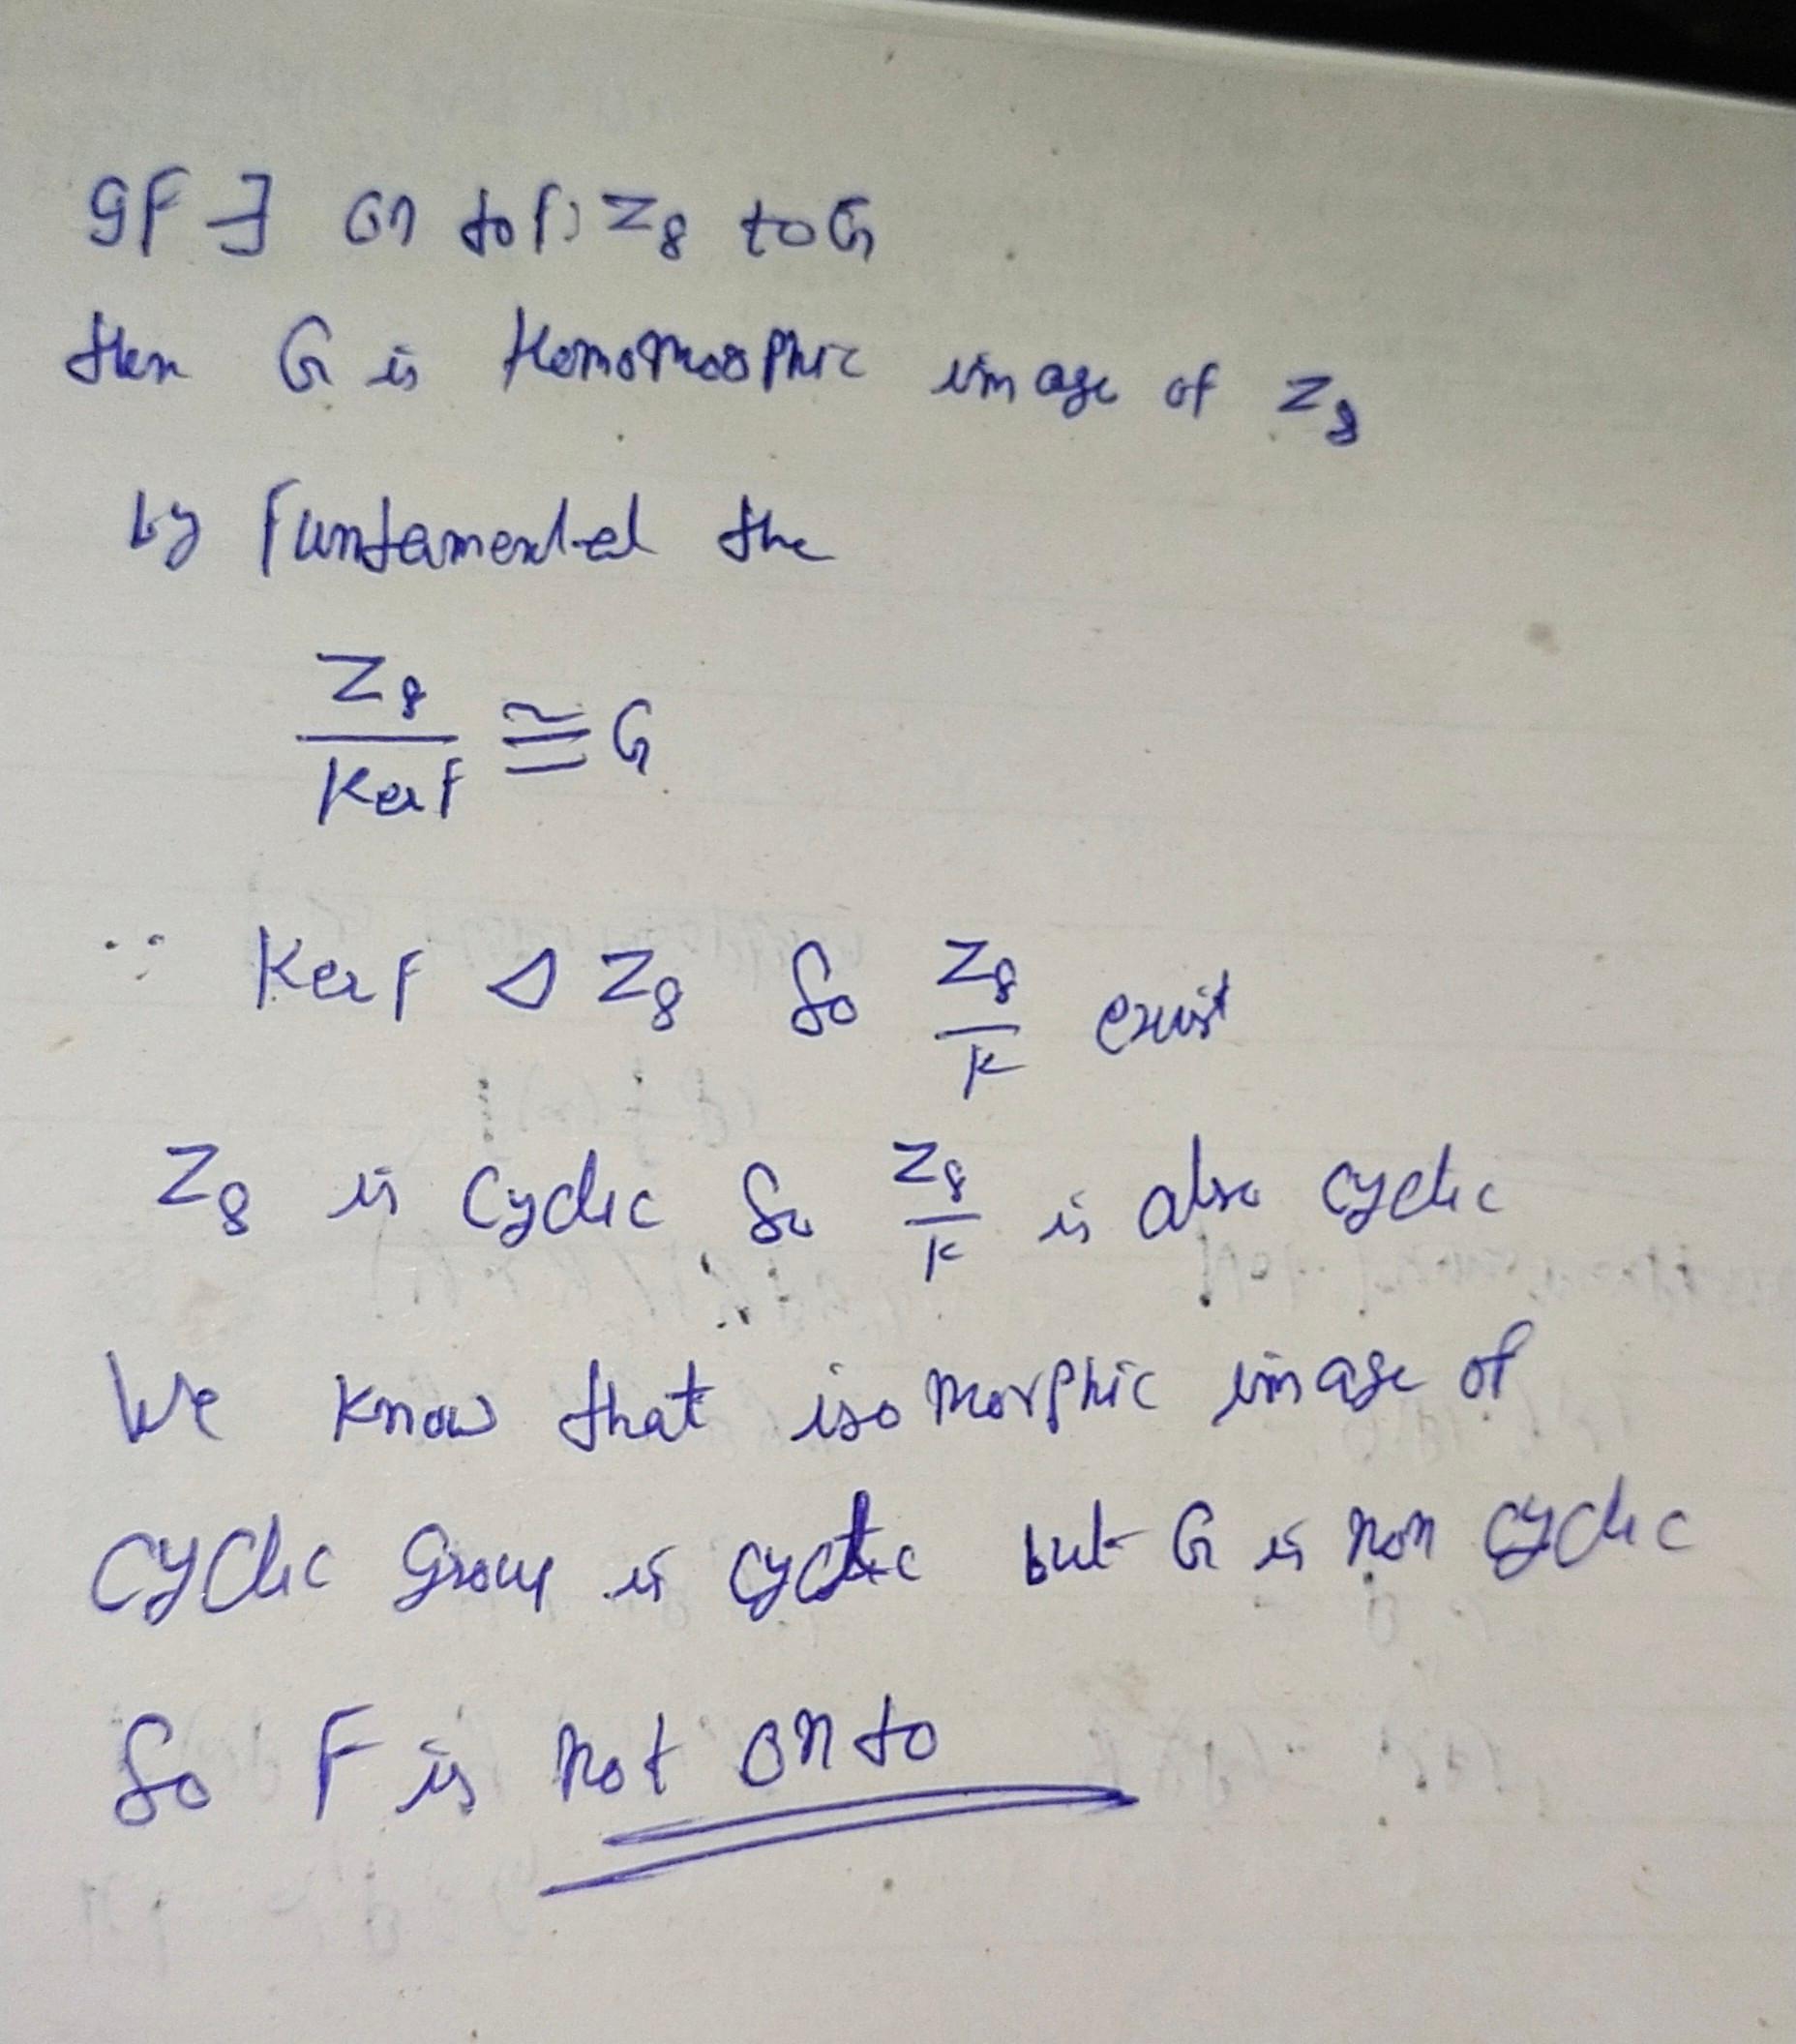 If ∃ on to f: Z₈ to G
then G is Homomorphic image of Z₈
by Funtamental the
Z₈/Kerf ≅ G
∵ Kerf Δ Z₈ So Z₈/K exist
Z₈ is Cyclic So Z₈/K is also cyclic
We know that isomorphic image of
Cyclic Group is cyclic but G is non cyclic
So F is not onto